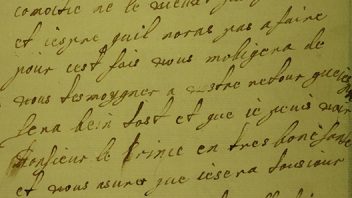 comorite ne le
et iespre quil noras pas afaire
pour cest fois vous mobligera de
vous tesmoygner a vostre retour que
sera bein tost et que ie puis voir
Monsieur le Prince en tres bone sante
et vous asurer que iesera tousiour